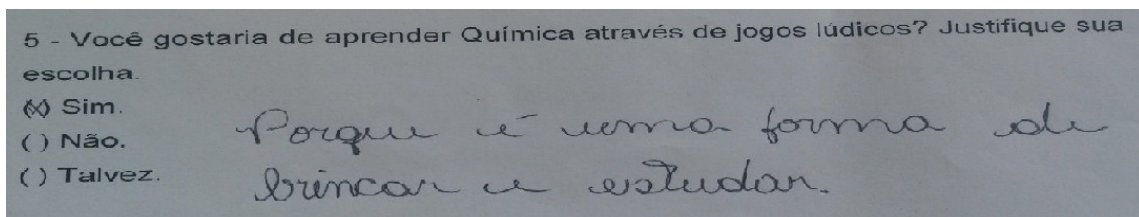 5 - Você gostaria de aprender Química através de jogos lúdicos? Justifique sua
escolha.
(x) Sim.
( ) Não.
( ) Talvez.
Porque é uma forma de
brincar e estudar.